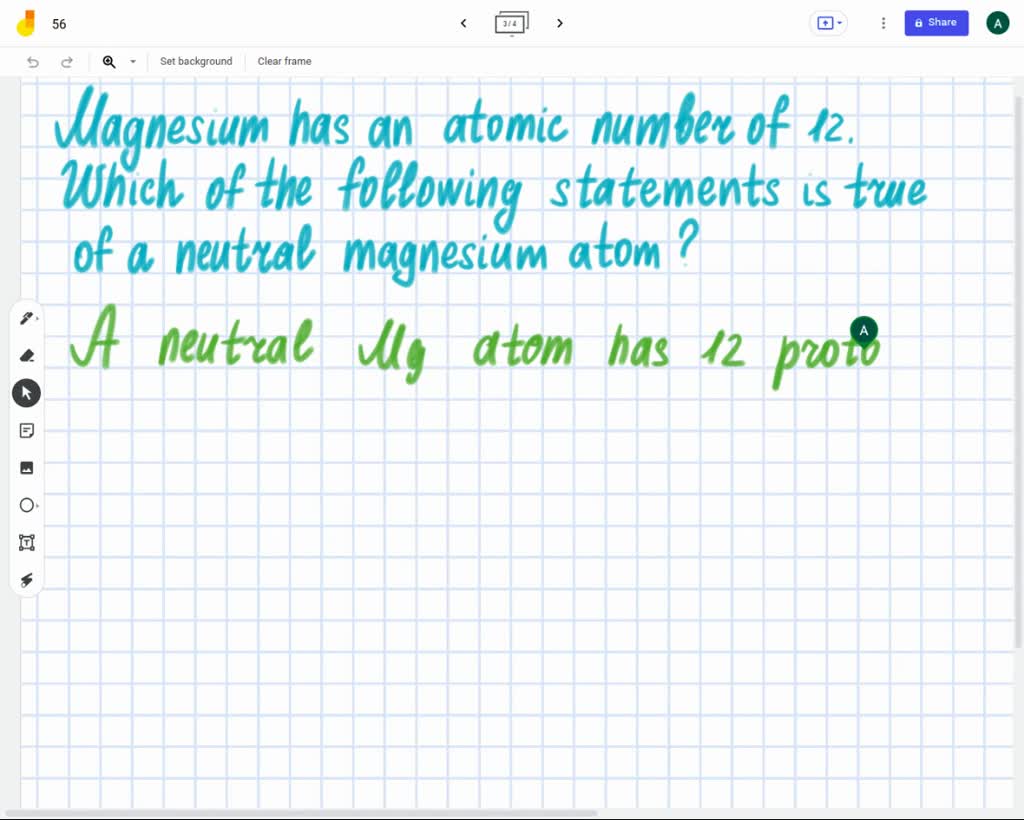 56
3 / 4
Share
A
Set background
Clear frame
Magnesium has an atomic number of 12.
Which of the following statements is true
of a neutral magnesium atom?
A neutral Mg atom has 12 proto
A
T